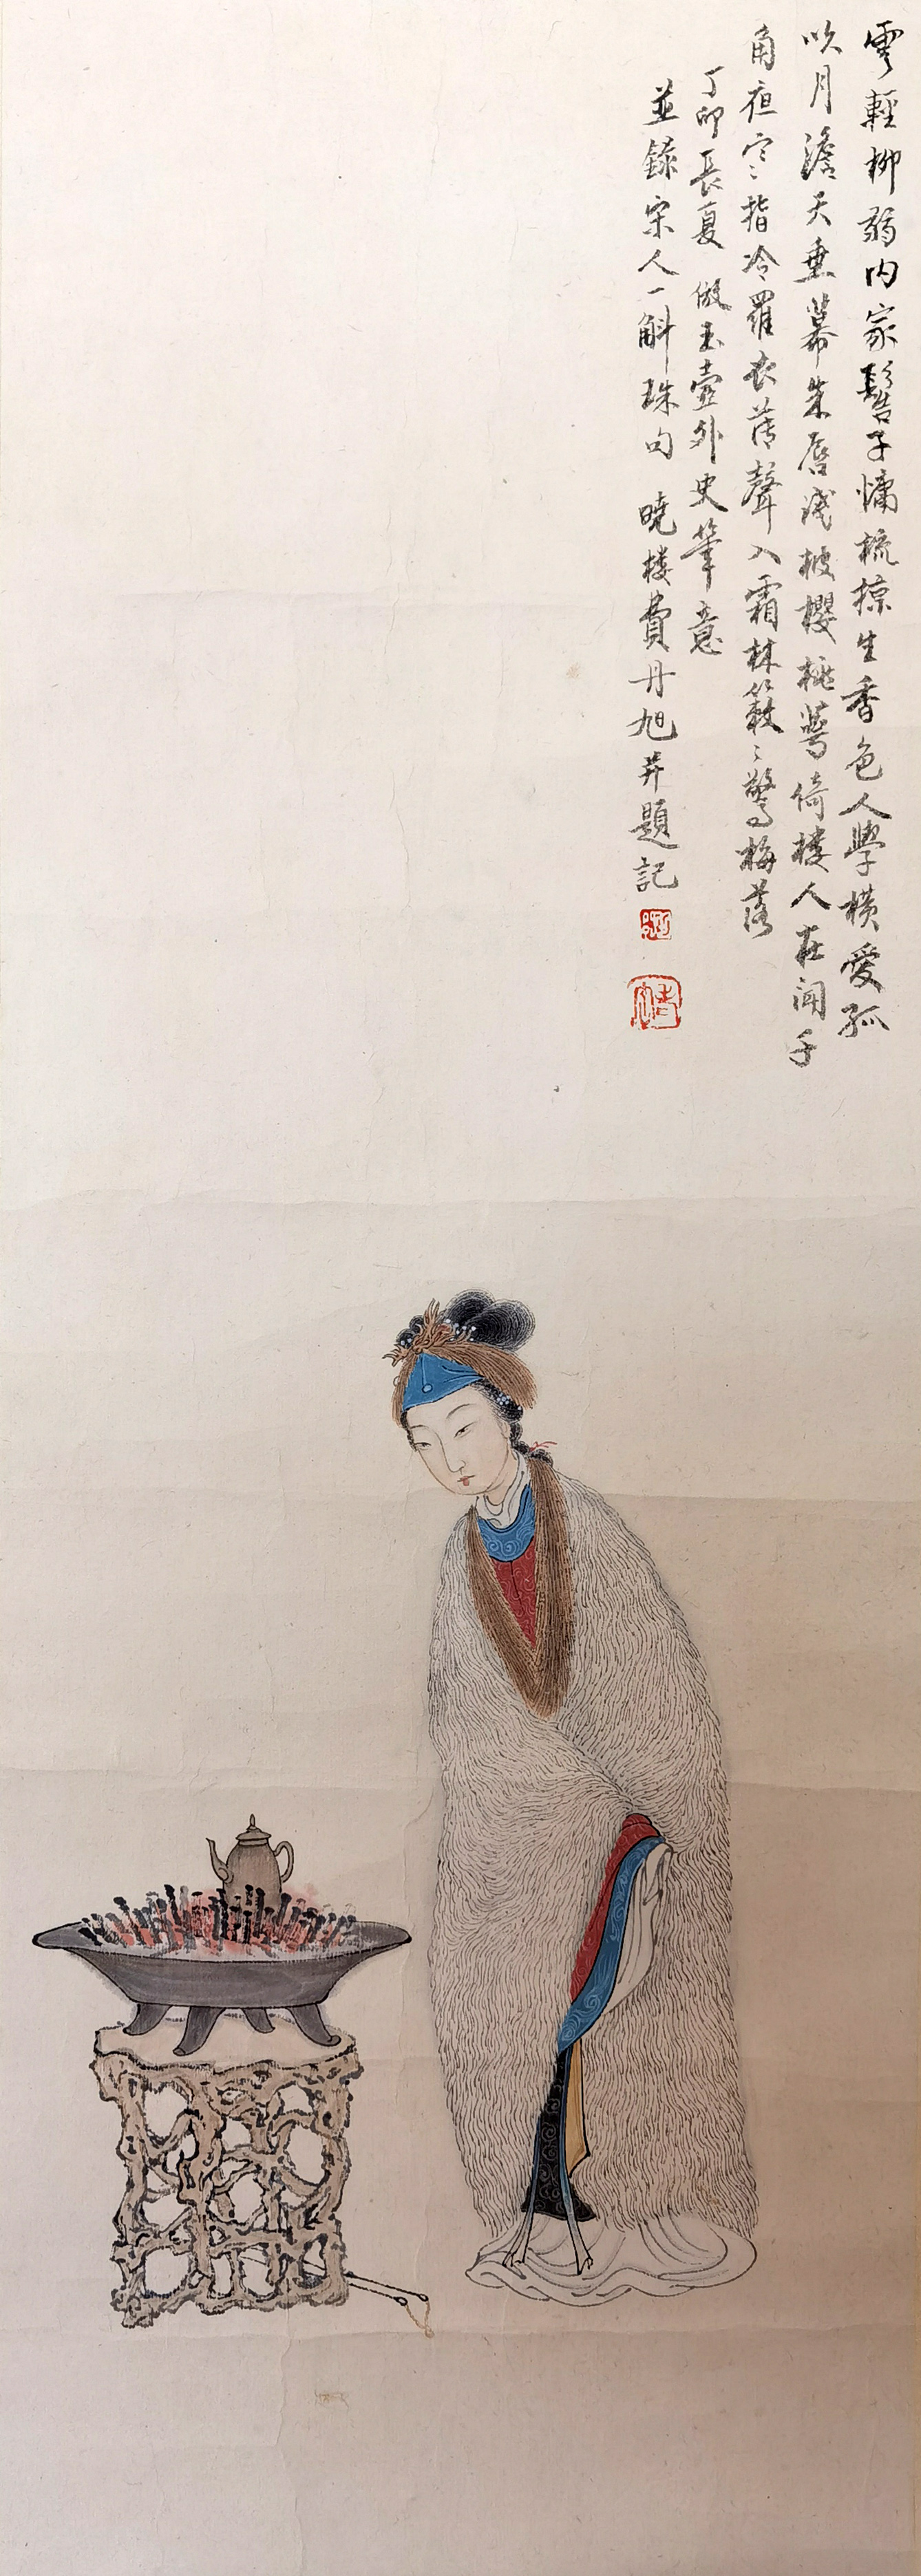 雲輕柳弱内家髻子慵梳掠生香色人學橫愛孤
吹月澹天垂幕朱唇淺被櫻桃萼倚樓人在闌干
角夜寒〻指冷羅衣薄聲入霜林簌〻驚梅落
丁卯長夏 倣玉壺外史筆意
並錄宋人一斛珠句 曉樓費丹旭并題記